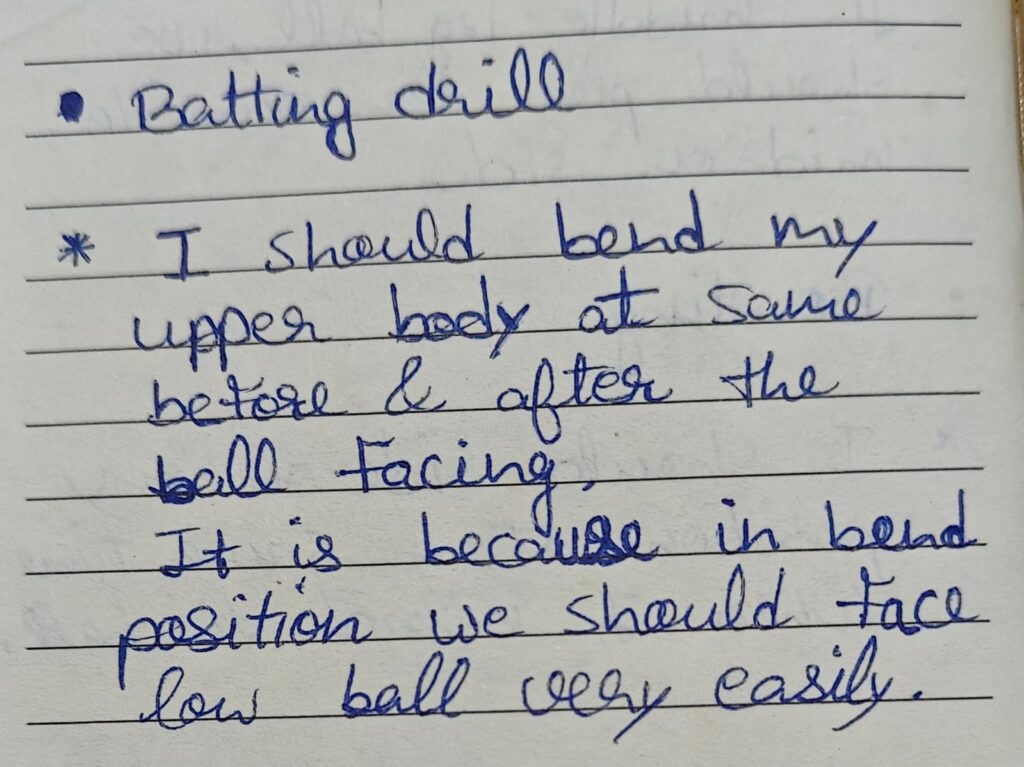 • Batting drill
* I should bend my
upper body at same
before & after the
ball facing.
It is because in bend
position we should face
low ball very easily.